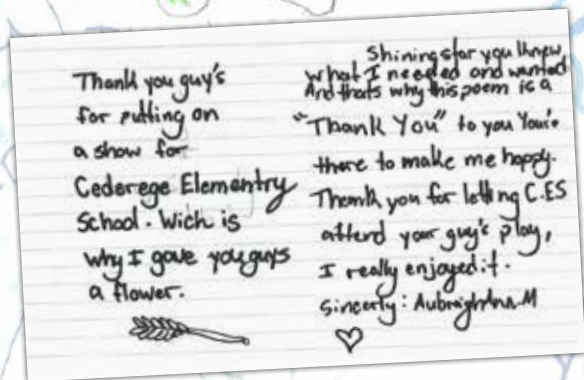 Thank you guy's
for putting on
a show for
Cederege Elementry
School. Wich is
why I gave you guys
a flower.
Shining star you knew
what I needed and wanted
And thats why this poem is a
"Thank You" to you You're
there to make me happy.
Thank you for letting C.ES
attend your guy's play,
I really enjoyed it.
Sincerly: AubreighAnn.M